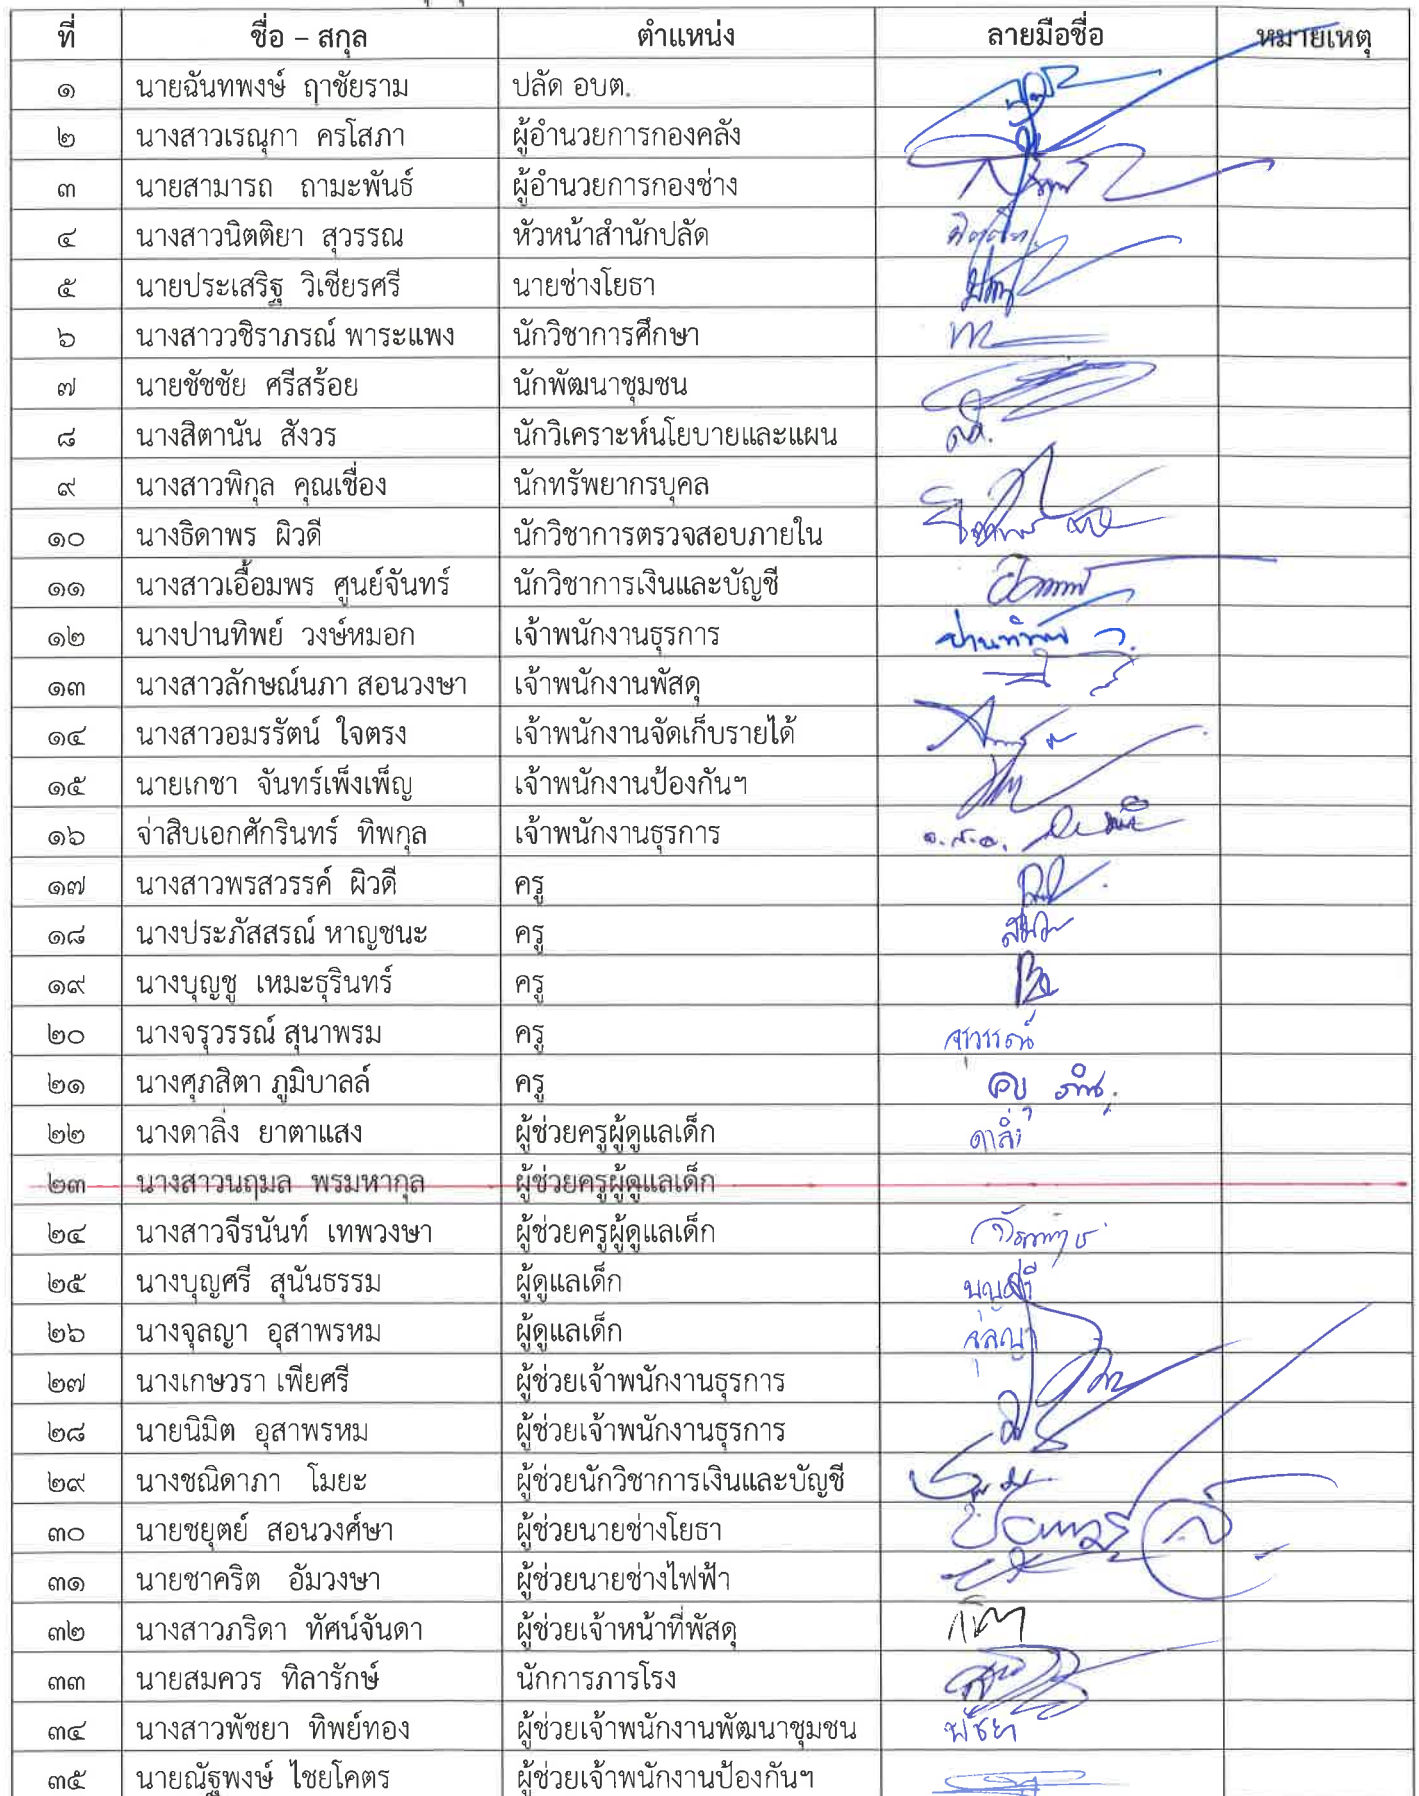 ที่ ชื่อ – สกุล ตำแหน่ง ลายมือชื่อ หมายเหตุ
๑ นายฉันทพงษ์ ฤาชัยราม ปลัด อบต.
๒ นางสาวเรณุกา ครโสภา ผู้อำนวยการกองคลัง
๓ นายสามารถ ถามะพันธ์ ผู้อำนวยการกองช่าง
๔ นางสาวนิตติยา สุวรรณ หัวหน้าสำนักปลัด
๕ นายประเสริฐ วิเชียรศรี นายช่างโยธา
๖ นางสาววชิราภรณ์ พาระแพง นักวิชาการศึกษา
๗ นายชัชชัย ศรีสร้อย นักพัฒนาชุมชน
๘ นางสิตานัน สังวร นักวิเคราะห์นโยบายและแผน
๙ นางสาวพิกุล คุณเชื่อง นักทรัพยากรบุคล
๑๐ นางธิดาพร ผิวดี นักวิชาการตรวจสอบภายใน
๑๑ นางสาวเอื้อมพร ศูนย์จันทร์ นักวิชาการเงินและบัญชี
๑๒ นางปานทิพย์ วงษ์หมอก เจ้าพนักงานธุรการ
๑๓ นางสาวลักษณ์นภา สอนวงษา เจ้าพนักงานพัสดุ
๑๔ นางสาวอมรรัตน์ ใจตรง เจ้าพนักงานจัดเก็บรายได้
๑๕ นายเกชา จันทร์เพ็งเพ็ญ เจ้าพนักงานป้องกันฯ
๑๖ จ่าสิบเอกศักรินทร์ ทิพกุล เจ้าพนักงานธุรการ
๑๗ นางสาวพรสวรรค์ ผิวดี ครู
๑๘ นางประภัสสรณ์ หาญชนะ ครู
๑๙ นางบุญชู เหมะธุรินทร์ ครู
๒๐ นางจรุวรรณ์ สุนาพรม ครู จรุวรรณ์
๒๑ นางศุภสิตา ภูมิบาลล์ ครู
๒๒ นางดาลิ่ง ยาตาแสง ผู้ช่วยครูผู้ดูแลเด็ก ดาลิ่ง
๒๓ นางสาวนฤมล พรมหากุล ผู้ช่วยครูผู้ดูแลเด็ก
๒๔ นางสาวจีรนันท์ เทพวงษา ผู้ช่วยครูผู้ดูแลเด็ก
๒๕ นางบุญศรี สุนันธรรม ผู้ดูแลเด็ก บุญศรี
๒๖ นางจุลญา อุสาพรหม ผู้ดูแลเด็ก จุลญา
๒๗ นางเกษวรา เพียศรี ผู้ช่วยเจ้าพนักงานธุรการ
๒๘ นายนิมิต อุสาพรหม ผู้ช่วยเจ้าพนักงานธุรการ
๒๙ นางชณิดาภา โมยะ ผู้ช่วยนักวิชาการเงินและบัญชี
๓๐ นายชยุตย์ สอนวงศ์ษา ผู้ช่วยนายช่างโยธา
๓๑ นายชาคริต อัมวงษา ผู้ช่วยนายช่างไฟฟ้า
๓๒ นางสาวภริดา ทัศน์จันดา ผู้ช่วยเจ้าหน้าที่พัสดุ
๓๓ นายสมควร ทิลารักษ์ นักการภารโรง
๓๔ นางสาวพัชยา ทิพย์ทอง ผู้ช่วยเจ้าพนักงานพัฒนาชุมชน พัชยา
๓๕ นายณัฐพงษ์ ไชยโคตร ผู้ช่วยเจ้าพนักงานป้องกันฯ